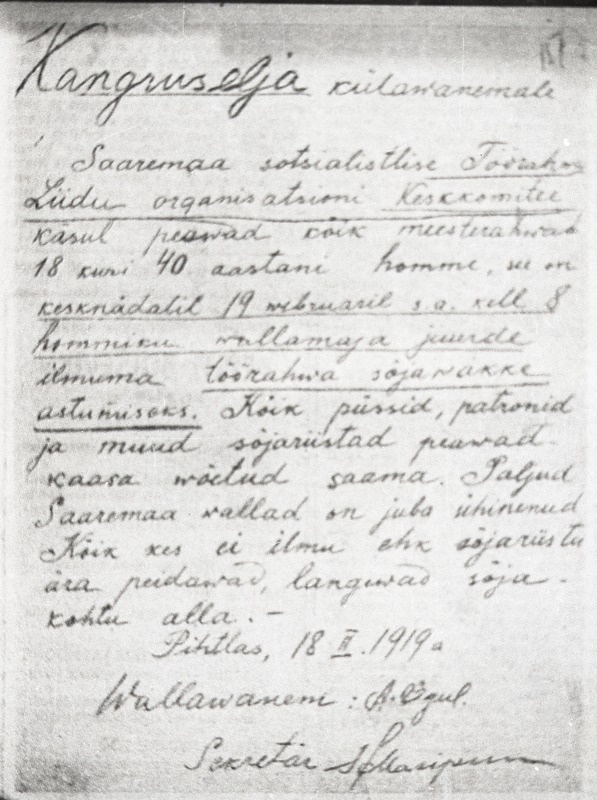 Kangruselja külawanemale
Saaremaa sotsialistlise Töörahwa
Liidu organisatsioni Keskkomitee
käsul peawad kõik meesterahwad
18 kuni 40 aastani homme, see on
kesknädalil 19 webruaril s.a. kell 8
hommiku wallamaja juurde
ilmuma töörahwa sõjawäkke
astumiseks. Kõik püssid, patronid
ja muud sõjariistad peawad
kaasa wõetud saama. Paljud
Saaremaa wallad on juba ühinenud
Kõik kes ei ilmu ehk sõjariistu
ära peidawad, languwad sõja-
kohtu alla. –
Pihtlas, 18 II. 1919a
Wallawanem: A.
Sekretär